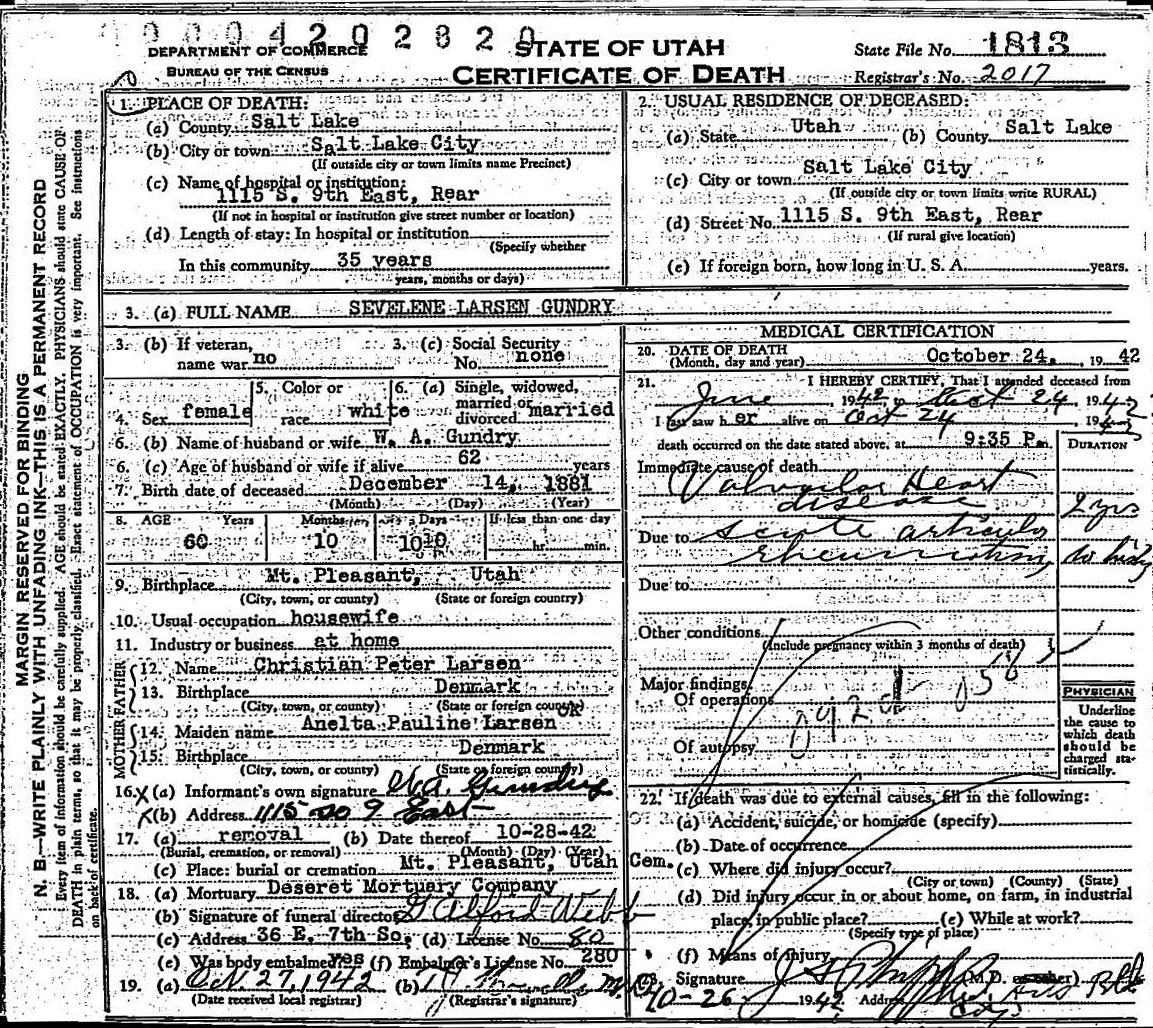 0 0 0 4 2 0 2 8 2 0
DEPARTMENT OF COMMERCE
BUREAU OF THE CENSUS
STATE OF UTAH
CERTIFICATE OF DEATH
State File No. 1813
Registrar's No. 2017
MARGIN RESERVED FOR BINDING
N. B—WRITE PLAINLY WITH UNFADING INK—THIS IS A PERMANENT RECORD
Every item of information should be carefully supplied. AGE should be stated EXACTLY. PHYSICIANS should state CAUSE OF
DEATH in plain terms, so that it may be properly classified. Exact statement of OCCUPATION is very important. See instructions
on back of certificate.
1. PLACE OF DEATH:
(a) County Salt Lake
(b) City or town Salt Lake City
(If outside city or town limits name Precinct)
(c) Name of hospital or institution:
1115 S. 9th East, Rear
(If not in hospital or institution give street number or location)
(d) Length of stay: In hospital or institution
(Specify whether
In this community 35 years
years, months or days)
2. USUAL RESIDENCE OF DECEASED:
(a) State Utah (b) County Salt Lake
(c) City or town Salt Lake City
(If outside city or town limits write RURAL)
(d) Street No. 1115 S. 9th East, Rear
(If rural give location)
(e) If foreign born, how long in U. S. A. years.
3. (a) FULL NAME SEVELENE LARSEN GUNDRY
3. (b) If veteran, name war no
3. (c) Social Security No. none
4. Sex female
5. Color or race white
6. (a) Single, widowed, married or divorced married
6. (b) Name of husband or wife W. A. Gundry
6. (c) Age of husband or wife if alive 62 years
7. Birth date of deceased December 14, 1881
(Month) (Day) (Year)
8. AGE Years Months Days If less than one day
60 10 10 10 hr. min.
9. Birthplace Mt. Pleasant, Utah
(City, town, or county) (State or foreign country)
10. Usual occupation housewife
11. Industry or business at home
FATHER
12. Name Christian Peter Larsen
13. Birthplace Denmark
(City, town, or county) (State or foreign country)
MOTHER
14. Maiden name Anelta Pauline Larsen OK
15. Birthplace Denmark
(City, town, or county) (State or foreign country)
16. X (a) Informant's own signature W A Gundry
X (b) Address 1115 So 9 East
17. (a) removal (b) Date thereof 10-28-42
(Burial, cremation, or removal) (Month) (Day) (Year)
(c) Place: burial or cremation Mt. Pleasant, Utah Cem.
18. (a) Mortuary Deseret Mortuary Company
(b) Signature of funeral director G Alford Webb
(c) Address 36 E. 7th So. (d) License No. 80
(e) Was body embalmed? yes (f) Embalmer's License No. 280
19. (a) Oct 27, 1942 (b)
(Date received local registrar) (Registrar's signature)
MEDICAL CERTIFICATION
20. DATE OF DEATH October 24, 1942
(Month, day and year)
21. I HEREBY CERTIFY, That I attended deceased from
June 1942, to Oct 24 1942
I last saw her alive on Oct 24 1942
death occurred on the date stated above, at 9:35 P m.
DURATION
Immediate cause of death
Valvular Heart disease 2 yrs
Due to acute articular rheumatism
Due to
Other conditions
(Include pregnancy within 3 months of death)
Major findings:
Of operations
092d 058
Of autopsy
PHYSICIAN
Underline
the cause to
which death
should be
charged sta-
tistically.
22. If death was due to external causes, fill in the following:
(a) Accident, suicide, or homicide (specify)
(b) Date of occurrence
(c) Where did injury occur?
(City or town) (County) (State)
(d) Did injury occur in or about home, on farm, in industrial
place, in public place? (e) While at work?
(Specify type of place)
(f) Means of injury
23. Signature (M.D. or other)
10-26- 1942 Address